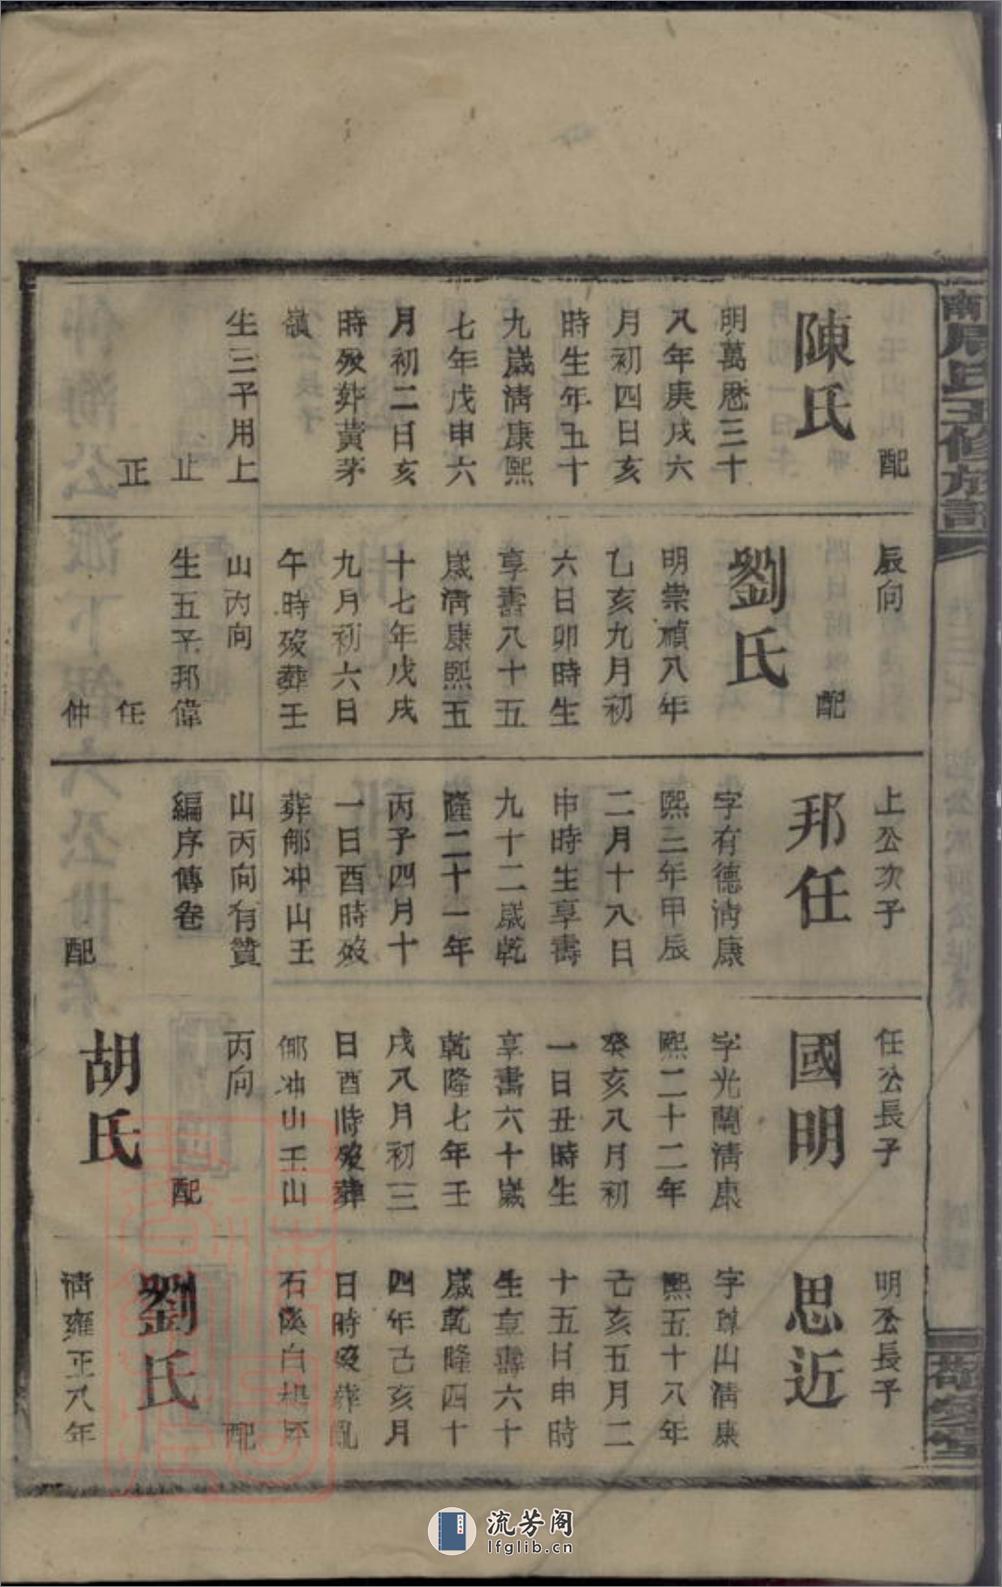 配
陳氏
明萬曆三十
八年庚戌六
月初四日亥
時生年五十
九歲清康熙
七年戊申六
月初二日亥
時歿葬黃茅
嶺
生三子用上
止
正
辰向
配
劉氏
明崇禎八年
乙亥九月初
六日卯時生
享壽八十五
歲清康熙五
十七年戊戌
九月初六日
午時歿葬壬
山丙向
生五子邦偉
任
仲
上公次子
邦任
字有德清康
熙三年甲辰
二月十八日
申時生享壽
九十二歲乾
隆二十一年
丙子四月十
一日酉時歿
葬鄉冲山壬
山丙向有贊
編序傳卷
配
任公長子
國明
字光蘭清康
熙二十二年
癸亥八月初
一日丑時生
享壽六十歲
乾隆七年壬
戌八月初三
日酉時歿葬
鄉冲山壬山
丙向
配
胡氏
明公長子
思近
字尊山清康
熙五十八年
己亥五月二
十五日申時
生享壽六十
歲乾隆四十
四年己亥月
日時歿葬亂
石溪白
配
劉氏
清雍正八年
周氏五修族譜
流芳阁
lfglib.cn